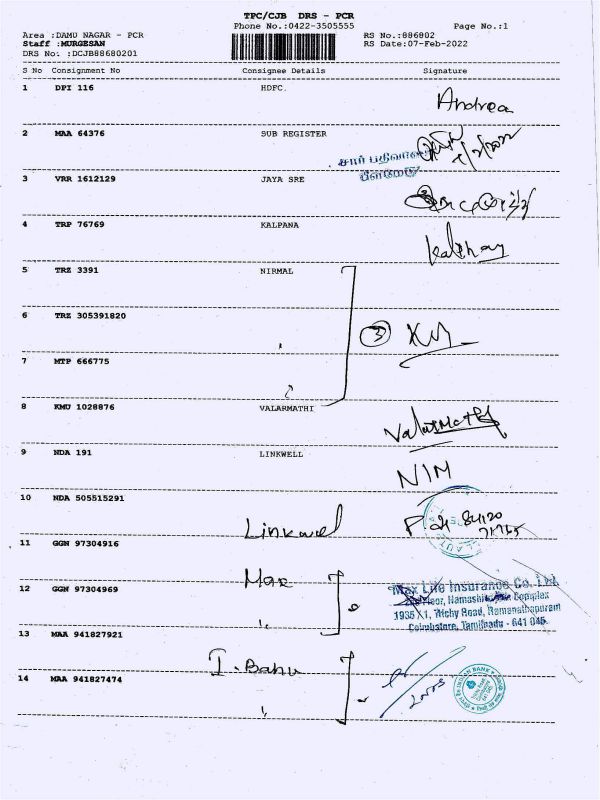 TPC/CJB DRS - PCR
Phone No.:0422-3505555 Page No.:1
Area :DAMU NAGAR - PCR RS No.:886802
Staff :MURGESAN RS Date:07-Feb-2022
DRS No: :DCJB88680201
S No Consignment No Consignee Details Signature
1 DPI 116 HDFC. Andrea
2 MAA 64376 SUB REGISTER
சார் பதிவாளர்
பீளமேடு
3 VRR 1612129 JAYA SRE
4 TRP 76769 KALPANA
5 TRZ 3391 NIRMAL
6 TRZ 305391820
3
7 MTP 666775
8 KMU 1028876 VALARMATHI
Valarmathy
9 NDA 191 LINKWELL
NIM
10 NDA 505515291
Linkwel
11 GGN 97304916
Max
12 GGN 97304969
Max Life Insurance Co. Ltd.
Floor, Namashivaya Complex
1935 X1, Trichy Road, Ramanathapuram
Coimbatore, Tamilnadu - 641 045.
13 MAA 941827921
I. Bank
14 MAA 941827474
INDIAN BANK